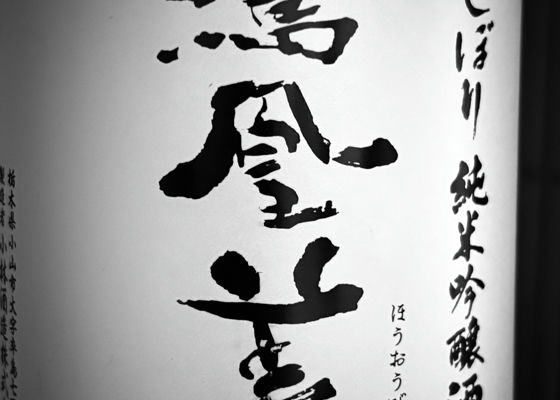 しぼり 純米吟醸酒
ほうおうび
鳳凰美
栃木県小山市大字卒島
製造者 小林酒造株式